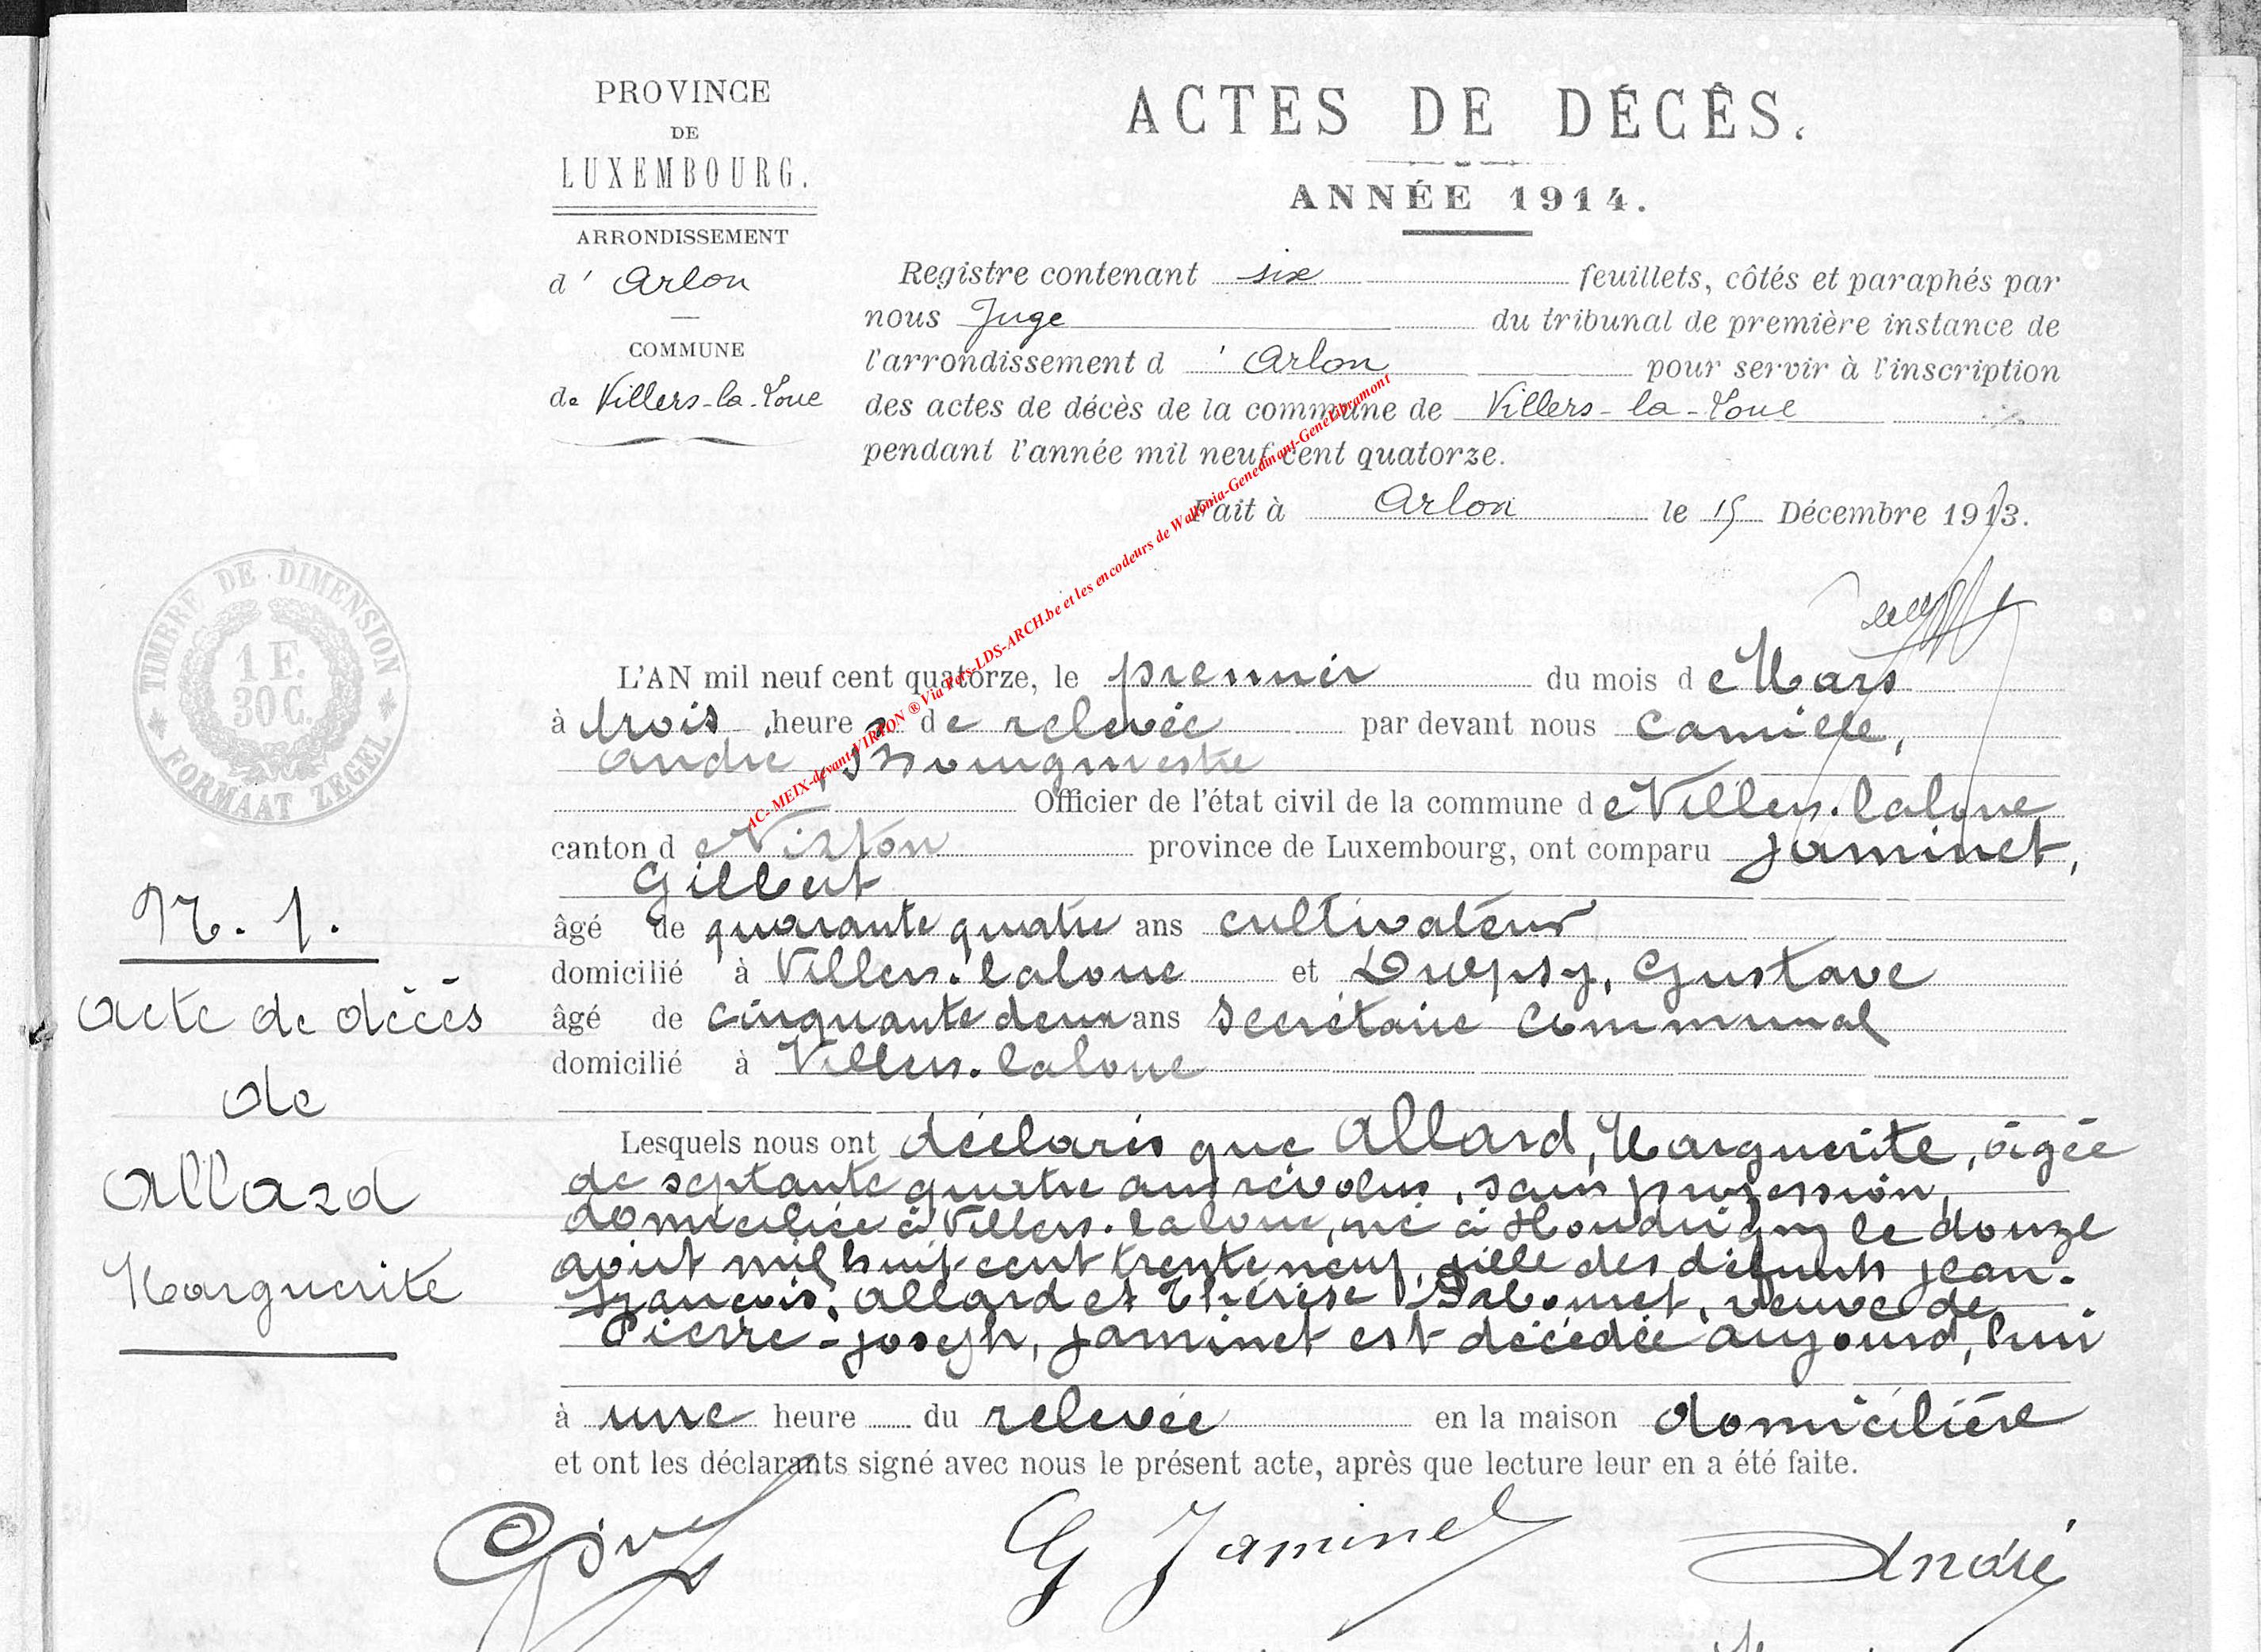 PROVINCE
DE
LUXEMBOURG.
ARRONDISSEMENT
d' Arlon
COMMUNE
de Villers-la-Loue
ACTES DE DÉCÈS.
ANNÉE 1914.
Registre contenant six feuillets, côtés et paraphés par
nous Juge du tribunal de première instance de
l'arrondissement d' Arlon pour servir à l'inscription
des actes de décès de la commune de Villers-la-Loue
pendant l'année mil neuf cent quatorze.
Fait à Arlon le 15 Décembre 1913.
TIMBRE DE DIMENSION
1 F.
30 C.
FORMAAT ZEGEL
AC-MEIX-devant-VIRTON ® Via Pers-LDS-ARCH.be et les encodeurs de Wallonia-Genedinant-GeneLibramont
L'AN mil neuf cent quatorze, le premier du mois de Mars
à trois heures de relevée par devant nous Camille,
André, Bourgmestre
Officier de l'état civil de la commune de Villers-laloue
canton de Virton province de Luxembourg, ont comparu Jaminet,
Gilbert
âgé de quarante quatre ans cultivateur
domicilié à Villers-laloue et Gustave
âgé de cinquante deux ans secrétaire communal
domicilié à Villers-laloue
N. 1.
Acte de décès
de
Allard
Marguerite
Lesquels nous ont déclarés que Allard, Marguerite, âgée
de septante quatre ans révolus, sans profession,
domiciliée à Villers-laloue, né à Houdrigny le douze
août mil huit cent trente neuf, fille des défunts Jean-
François, Allard et Thérèse veuve de
Pierre-Joseph, Jaminet est décédée aujourd'hui
à une heure du relevée en la maison domicilière
et ont les déclarants signé avec nous le présent acte, après que lecture leur en a été faite.
G Jaminet
André